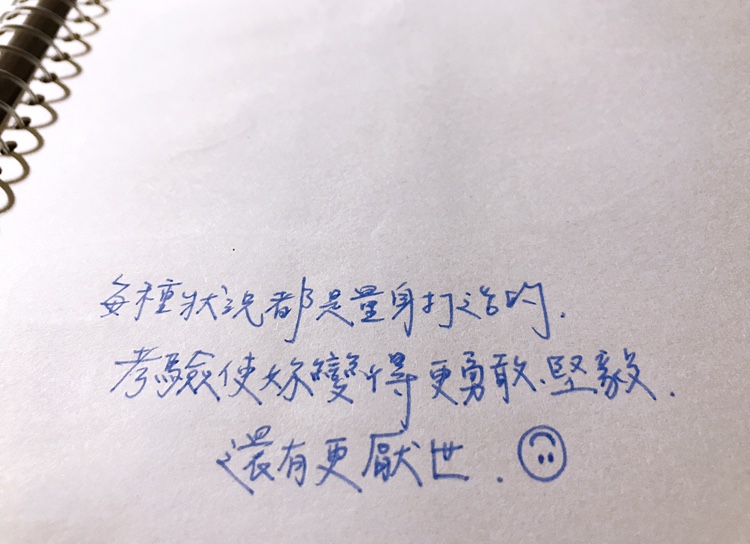 每種狀況都是量身打造的.
考驗使妳變得更勇敢、堅毅.
還有更厭世.